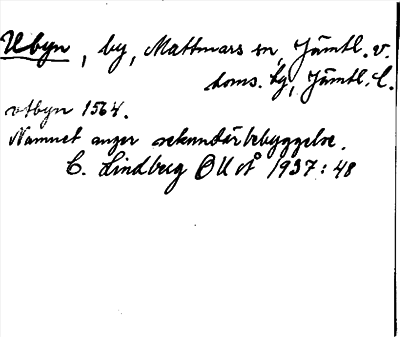 Ubyn, by, Mattmars sn, Jämtl. v.
doms. hg, Jämtl. l.
vtbyn 1564.
Namnet anger sekundärbebyggelse.
C. Lindberg OUÅ 1937: 48